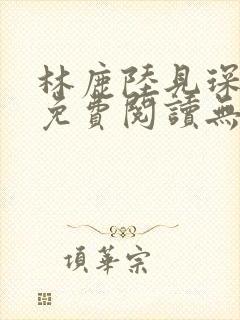 林鹿陸見深
免費閱讀無
項華宗